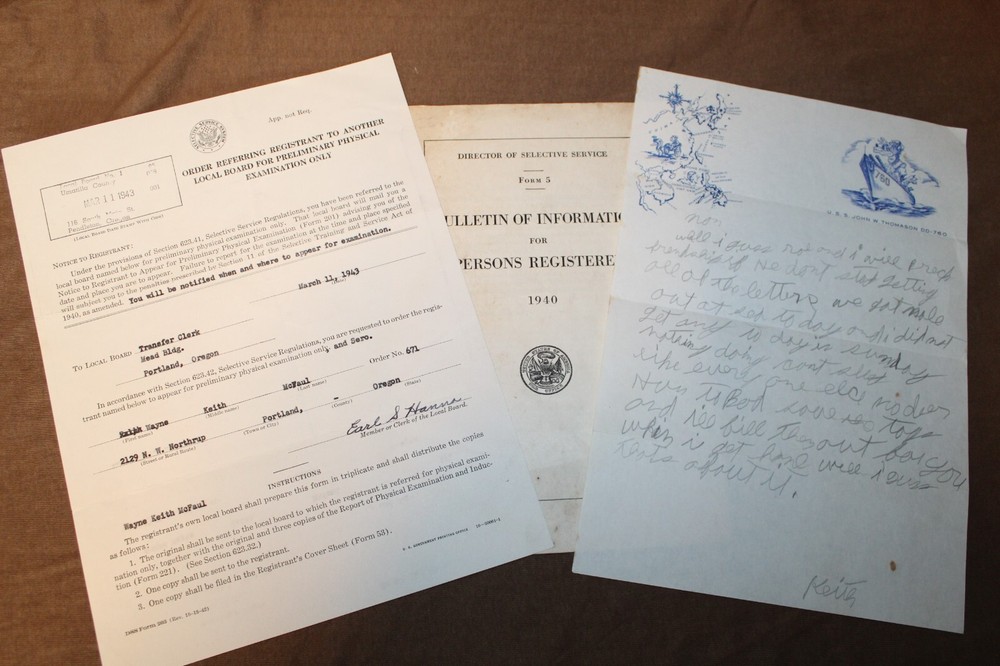 App. not Req.
ORDER REFERRING REGISTRANT TO ANOTHER
LOCAL BOARD FOR PRELIMINARY PHYSICAL
EXAMINATION ONLY
Local Board No. 1
Umatilla County
MAR 11 1943
Pendleton, Oregon
(LOCAL BOARD DATE STAMP WITH CODE)
NOTICE TO REGISTRANT:
Under the provisions of Section 623.41, Selective Service Regulations, you have been referred to the
local board named below for preliminary physical examination only. That local board will mail you a
Notice to Registrant to Appear for Preliminary Physical Examination (Form 201) advising you of the
date and place you are to appear. Failure to report for the examination at the time and place specified
will subject you to the penalties prescribed by Section 11 of the Selective Training and Service Act of
1940, as amended. You will be notified when and where to appear for examination.
March 11, 1943
(Date)
TO LOCAL BOARD
Transfer Clerk
Mead Bldg.
Portland, Oregon
In accordance with Section 623.42, Selective Service Regulations, you are requested to order the regis-
trant named below to appear for preliminary physical examination only, and Sero.
Keith Wayne Keith McFaul Order No. 671
(First name) (Middle name) (Last name)
2129 N. W. Northrup Portland, - Oregon
(Street or Rural Route) (Town or City) (County) (State)
Earl S Hanna
Member or Clerk of the Local Board.
INSTRUCTIONS
Wayne Keith McFaul
The registrant's own local board shall prepare this form in triplicate and shall distribute the copies
as follows:
1. The original shall be sent to the local board to which the registrant is referred for physical exami-
nation only, together with the original and three copies of the Report of Physical Examination and Induc-
tion (Form 221). (See Section 623.32.)
2. One copy shall be sent to the registrant.
3. One copy shall be filed in the Registrant's Cover Sheet (Form 53).
U. S. GOVERNMENT PRINTING OFFICE
DIRECTOR OF SELECTIVE SERVICE
FORM 5
BULLETIN OF INFORMATIO
FOR
PERSONS REGISTERE
1940
760
U. S. S. JOHN W. THOMASON DD-760
mom
well i guess round i will
dont getting
all of the letters we got male
out at sea to day or i did not
get any to day is sunday
nothing doing
like every one else
Hun to Bob save
and i'll fill this out for you
when i get home will
about it.
Keith